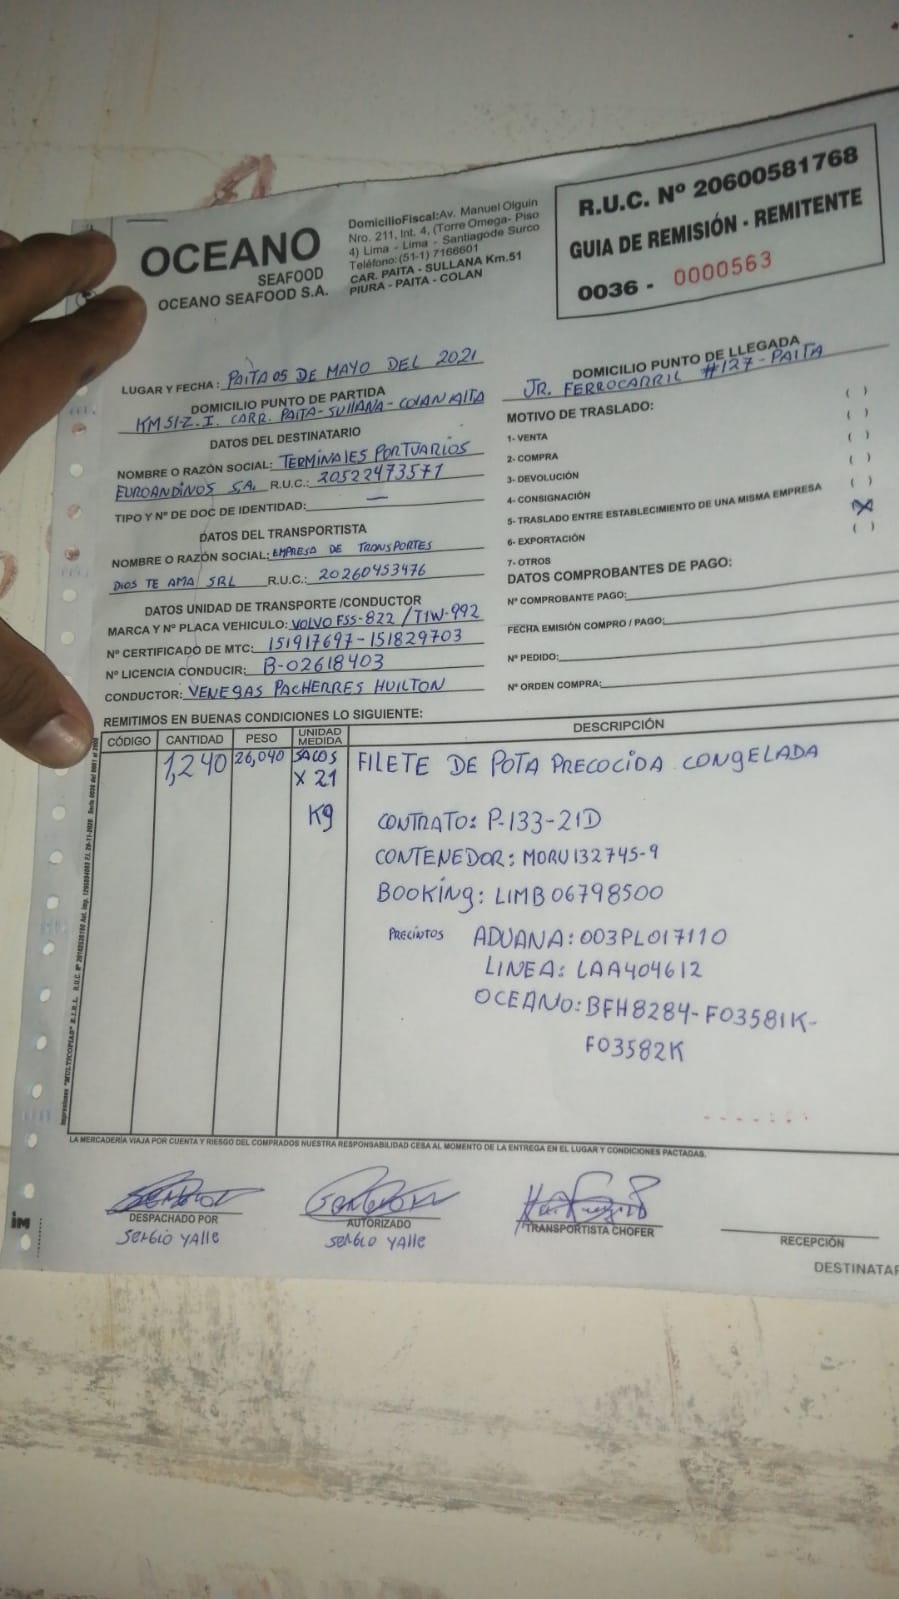 OCEANO
SEAFOOD
OCEANO SEAFOOD S.A.
DomicilioFiscal:Av. Manuel Olguin
Nro. 211, Int. 4, (Torre Omega- Piso
4) Lima - Lima - Santiagode Surco
Teléfono:(51-1) 7166601
CAR. PAITA - SULLANA Km.51
PIURA - PAITA - COLAN
R.U.C. Nº 20600581768
GUIA DE REMISIÓN - REMITENTE
0036 - 0000563
LUGAR Y FECHA : PAITA 05 DE MAYO DEL 2021
DOMICILIO PUNTO DE PARTIDA
KM 51-Z.I. CARR. PAITA-SULLANA-COLAN
DATOS DEL DESTINATARIO
NOMBRE O RAZÓN SOCIAL: TERMINALES PORTUARIOS
EUROANDINOS S.A. R.U.C.: 20522473571
TIPO Y Nº DE DOC DE IDENTIDAD: —
DATOS DEL TRANSPORTISTA
NOMBRE O RAZÓN SOCIAL: EMPRESA DE TRANSPORTES
DIOS TE AMA SRL R.U.C.: 20260453476
DATOS UNIDAD DE TRANSPORTE /CONDUCTOR
MARCA Y Nº PLACA VEHICULO: VOLVO FSS-822 / T1W-992
Nº CERTIFICADO DE MTC: 151917697-151829703
Nº LICENCIA CONDUCIR: B-02618403
CONDUCTOR: VENEGAS PACHERRES HUILTON
DOMICILIO PUNTO DE LLEGADA
JR. FERROCARRIL #127-PAITA
MOTIVO DE TRASLADO:
1- VENTA ( )
2- COMPRA ( )
3- DEVOLUCIÓN ( )
4- CONSIGNACIÓN ( )
5- TRASLADO ENTRE ESTABLECIMIENTO DE UNA MISMA EMPRESA ( )
6- EXPORTACIÓN (X)
7- OTROS ( )
DATOS COMPROBANTES DE PAGO:
Nº COMPROBANTE PAGO:
FECHA EMISIÓN COMPRO / PAGO:
Nº PEDIDO:
Nº ORDEN COMPRA:
REMITIMOS EN BUENAS CONDICIONES LO SIGUIENTE:
CÓDIGO CANTIDAD PESO UNIDAD MEDIDA DESCRIPCIÓN
1,240 26,040 SACOS FILETE DE POTA PRECOCIDA CONGELADA
X 21
Kg CONTRATO: P-133-21D
CONTENEDOR: MORU132745-9
BOOKING: LIMB06798500
PRECINTOS ADUANA: 003PL017110
LINEA: LAA404612
OCEANO: BFH8284-F03581K-
F03582K
LA MERCADERÍA VIAJA POR CUENTA Y RIESGO DEL COMPRADOS NUESTRA RESPONSABILIDAD CESA AL MOMENTO DE LA ENTREGA EN EL LUGAR Y CONDICIONES PACTADAS.
DESPACHADO POR
SERGIO YALLE
AUTORIZADO
SERGIO YALLE
TRANSPORTISTA CHOFER
RECEPCIÓN
DESTINATAR